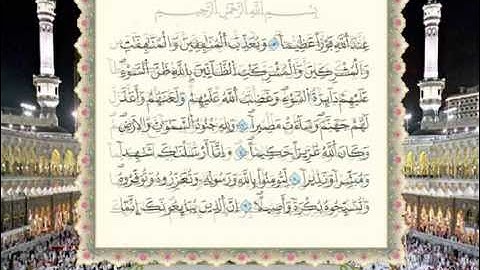 بِسْمِ اللَّهِ الرَّحْمَٰنِ الرَّحِيمِ
عِندَ اللَّهِ فَوْزًا عَظِيمًا ۝ وَيُعَذِّبَ الْمُنَٰفِقِينَ وَالْمُنَٰفِقَٰتِ
وَالْمُشْرِكِينَ وَالْمُشْرِكَٰتِ الظَّآنِّينَ بِاللَّهِ ظَنَّ السَّوْءِ
عَلَيْهِمْ دَآئِرَةُ السَّوْءِ وَغَضِبَ اللَّهُ عَلَيْهِمْ وَلَعَنَهُمْ وَأَعَدَّ
لَهُمْ جَهَنَّمَ وَسَآءَتْ مَصِيرًا ۝ وَلِلَّهِ جُنُودُ السَّمَٰوَٰتِ وَالْأَرْضِ
وَكَانَ اللَّهُ عَزِيزًا حَكِيمًا ۝ إِنَّآ أَرْسَلْنَٰكَ شَٰهِدًا
وَمُبَشِّرًا وَنَذِيرًا ۝ لِّتُؤْمِنُوا بِاللَّهِ وَرَسُولِهِ وَتُعَزِّرُوهُ وَتُوَقِّرُوهُ
وَتُسَبِّحُوهُ بُكْرَةً وَأَصِيلًا ۝ إِنَّ الَّذِينَ يُبَايِعُونَكَ إِنَّمَا